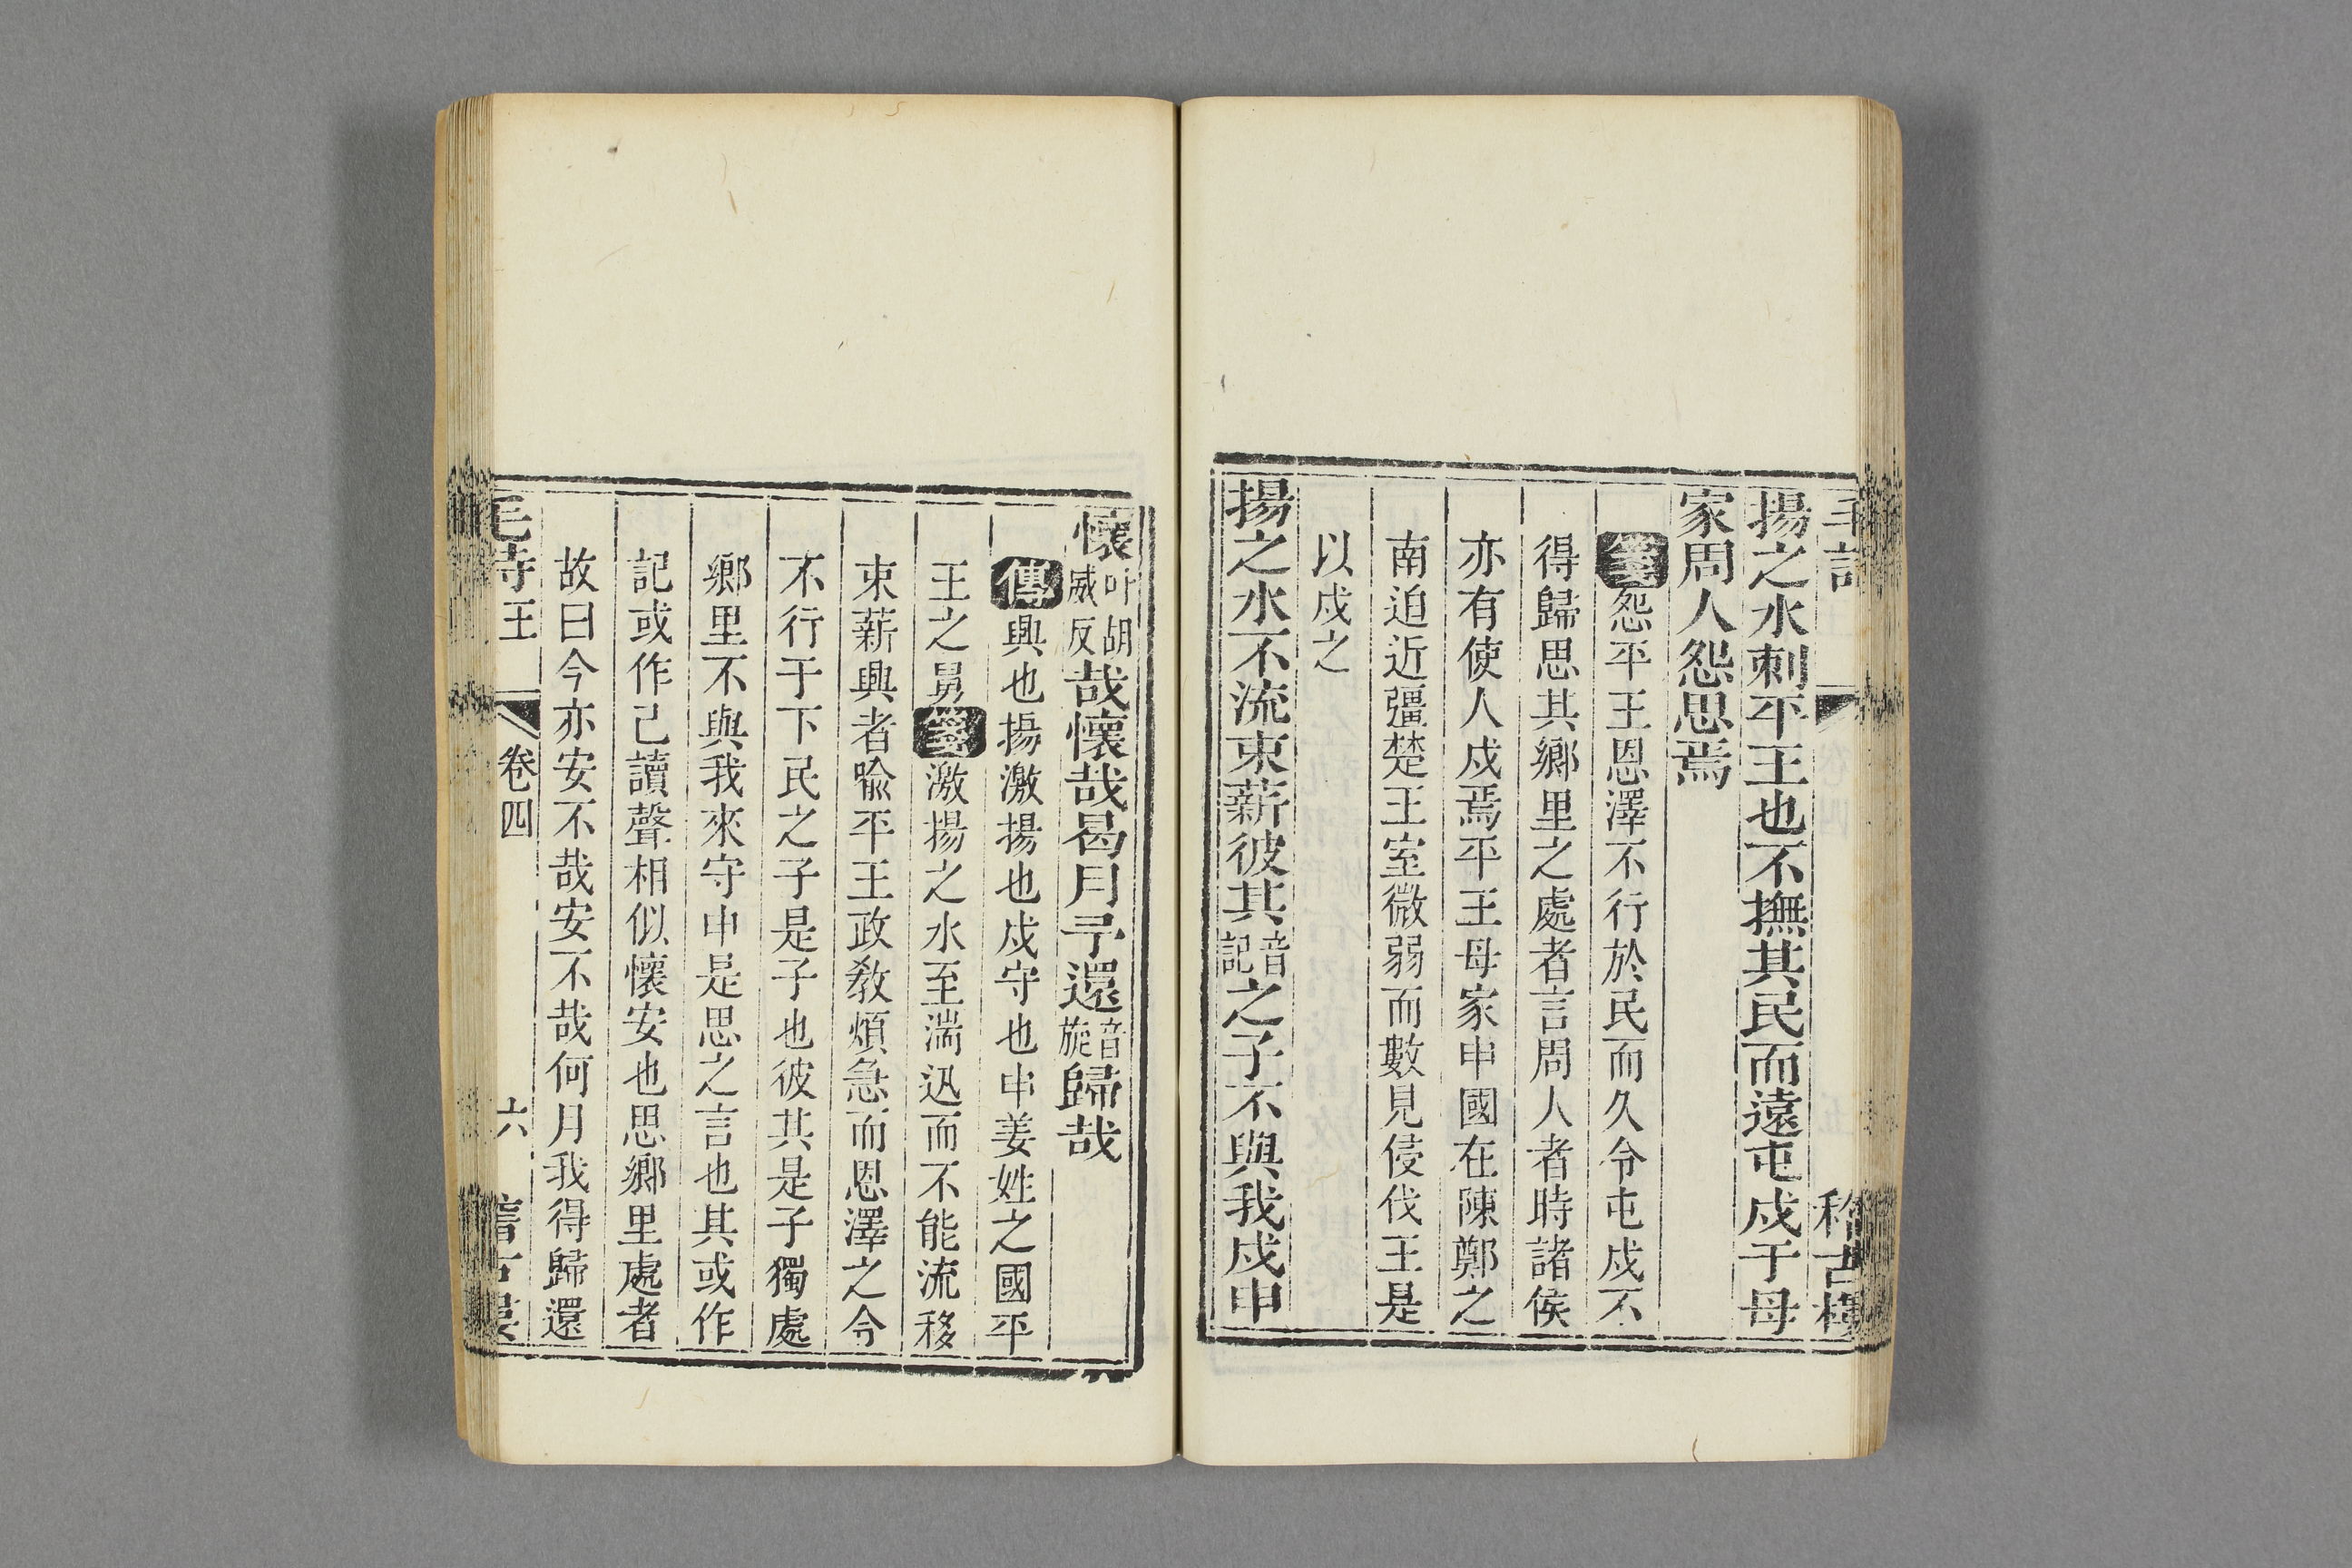 毛詩 稽古樓
揚之水刺平王也不撫其民而遠屯戍于母
家周人怨思焉
箋怨平王恩澤不行於民而久令屯戍不
得歸思其鄉里之處者言周人者時諸侯
亦有使人戍焉平王母家申國在陳鄭之
南迫近彊楚王室微弱而數見侵伐王是
以戍之
揚之水不流束薪彼其音記之子不與我戍申
懷叶胡威反哉懷哉曷月予還音旋歸哉
傳興也揚激揚也戍守也申姜姓之國平
王之舅箋激揚之水至湍迅而不能流移
束薪興者喻平王政教煩急而恩澤之令
不行于下民之子是子也彼其是子獨處
鄉里不與我來守申是思之言也其或作
記或作己讀聲相似懷安也思鄉里處者
故曰今亦安不哉安不哉何月我得歸還
毛詩王 卷四 六